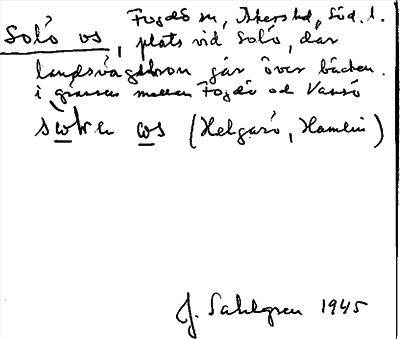 Fogdö sn, Åkers hd, Söd. l.
Solö os, plats vid Solö, där
landsvägsbron går över bäcken
i gränsen mellan Fogdö och Vansö
os (Helgarö, Hamlin)
J. Sahlgren 1945